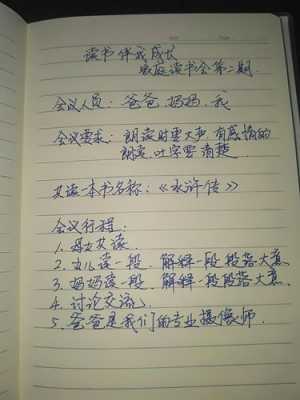 读书伴我成长
家庭读书会第二期.
会议人员：爸爸、妈妈、我
会议要求：朗读时要大声 有感情的
朗读.吐字要清楚.
共读一本书名称：《水浒传》
会议行程：
1. 母女共读.
2. 女儿读一段、解释一段段落大意
3. 妈妈读一段、解释一段段落大意.
4. 讨论交流.
5. 爸爸是我们的专业摄像师.